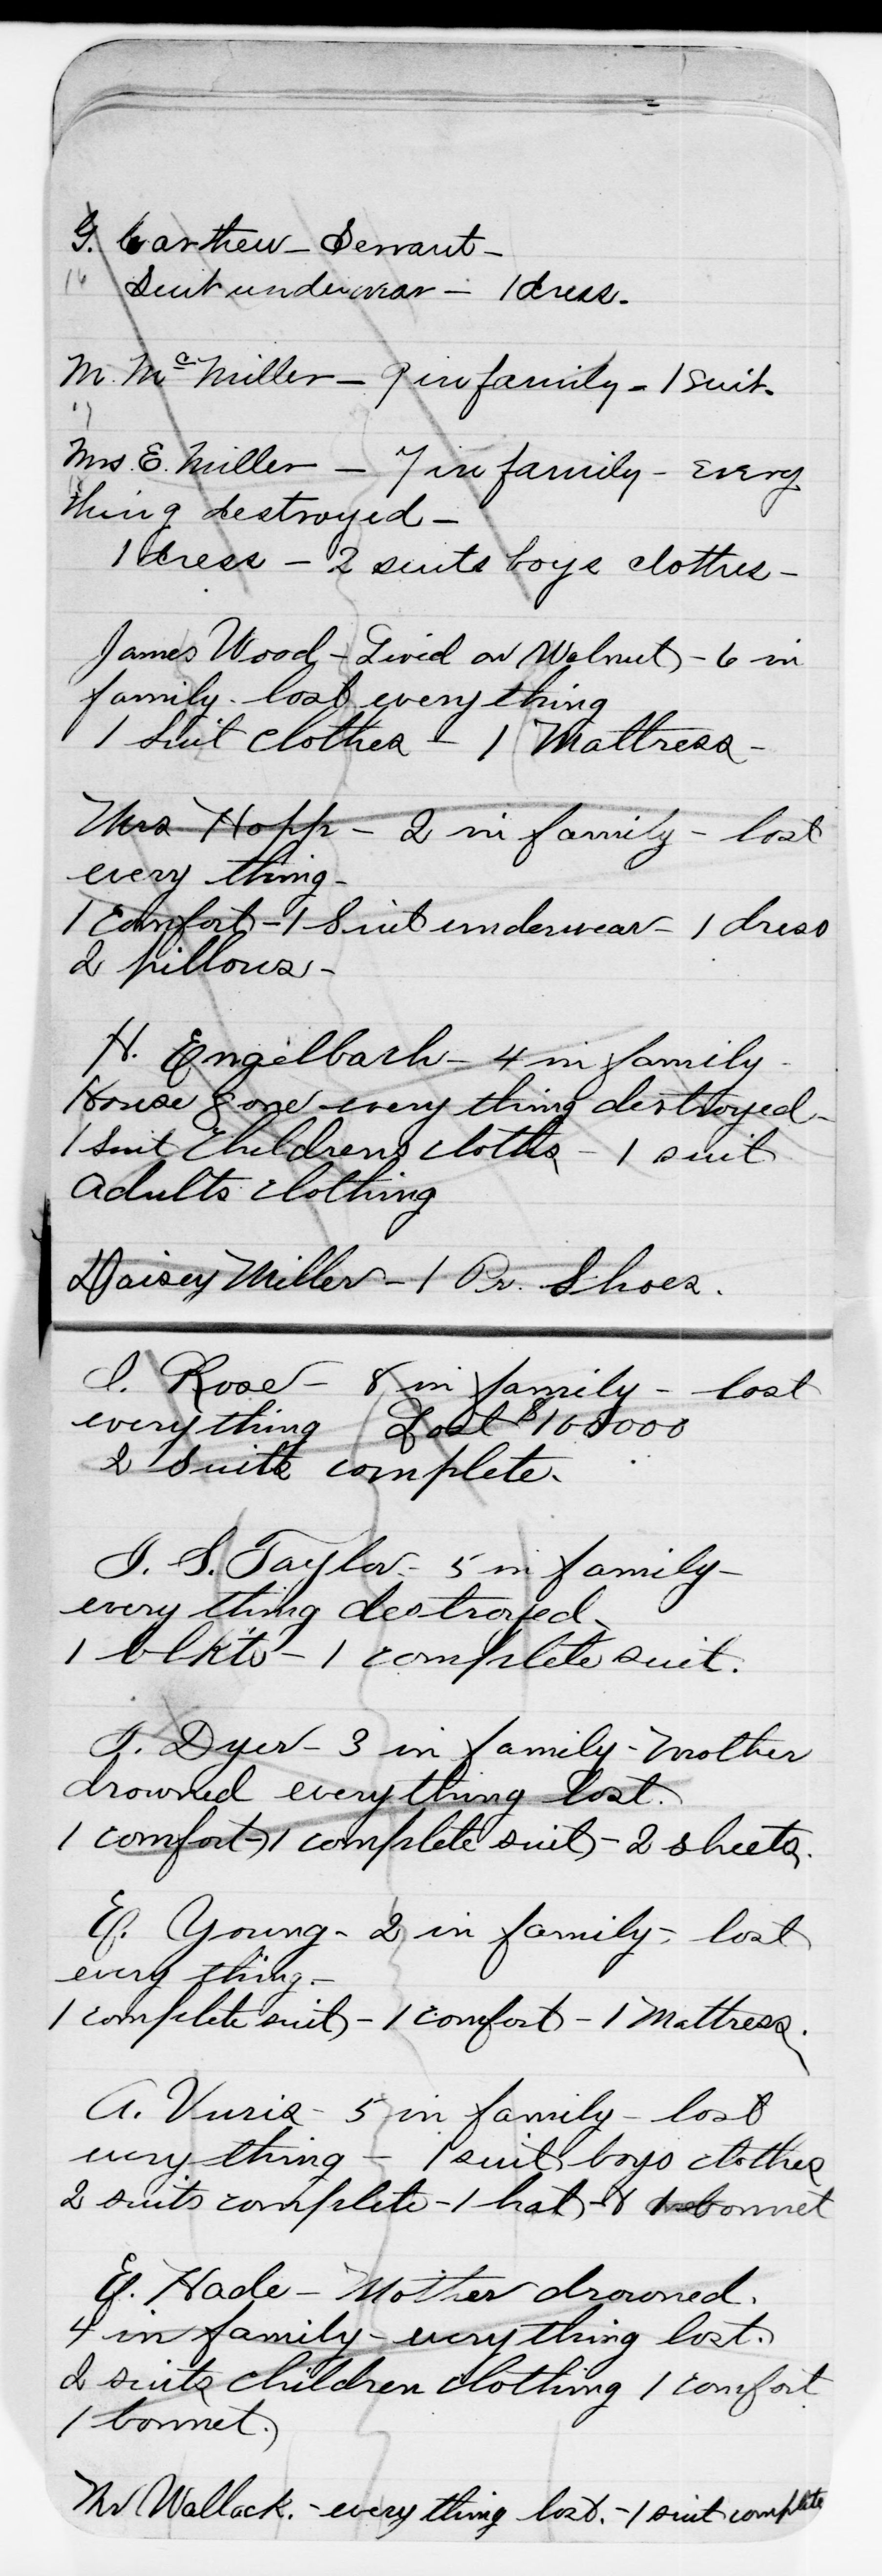 G. Carthew - Servant -
16 Suit underwear - 1 dress.
M. Mc Miller - 9 in family - 1 suit.
17
Mrs. E. Miller - 7 in family - Every
thing destroyed -
1 dress - 2 suits boys clothes -
James Wood - Livid on Walnut - 6 in
family - lost every thing
1 Suit clothes - 1 Mattress -
Mrs Hopp - 2 in family - lost
every thing -
1 Comfort - 1 Suit underwear - 1 dress
2 pillows -
H. Engelbach - 4 in family -
House gone every thing destroyed -
1 Suit Childrens cloths - 1 suit
Adults clothing
Daisey Miller - 1 Pr. Shoes.
I. Rose - 8 in family - lost
every thing Lost $100000
2 Suits complete.
I. S. Taylor - 5 in family -
every thing destroyed -
1 blkts - 1 complete suit.
I. Dyer - 3 in family - Mother
drowned every thing lost.
1 comfort - 1 complete suit - 2 sheets.
E. Young - 2 in family - lost
every thing. -
1 complete suit - 1 comfort - 1 Mattress.
A. Vuris - 5 in family - lost
every thing - 1 suit boys clothes
2 suits complete - 1 hat - & 1 bonnet
E. Hade - Mother drowned.
4 in family - every thing lost.
2 suits children clothing 1 comfort
1 bonnet.
Mr Wallack. - every thing lost. - 1 suit complete